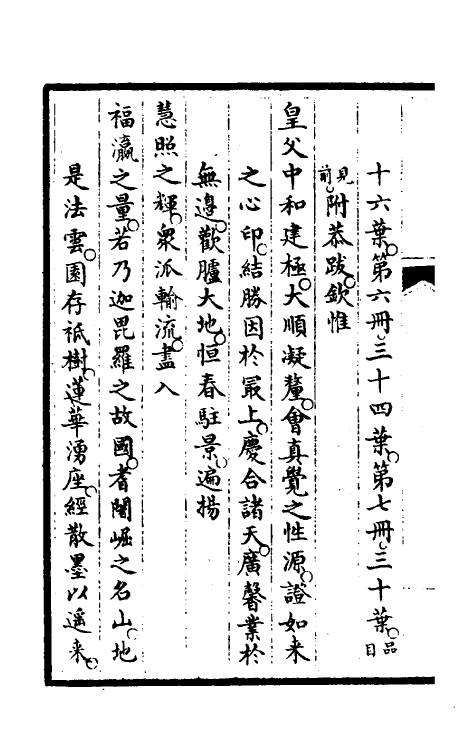 十六葉。第六冊。三十四葉。第七冊。三十葉。品目
見前附恭跋。欽惟
皇父中和建極。大順凝釐。會真覺之性源。證如来
之心印。結勝因於最上。慶合諸天。廣馨業於
無邊。歡臚大地。恒春駐景。遍揚
慧照之輝。衆派輸流。盡入
福瀛之量。若乃迦毘羅之故國。耆闍崛之名山。地
是法雲。園存祗樹。蓮華湧座。經散墨以遥来。